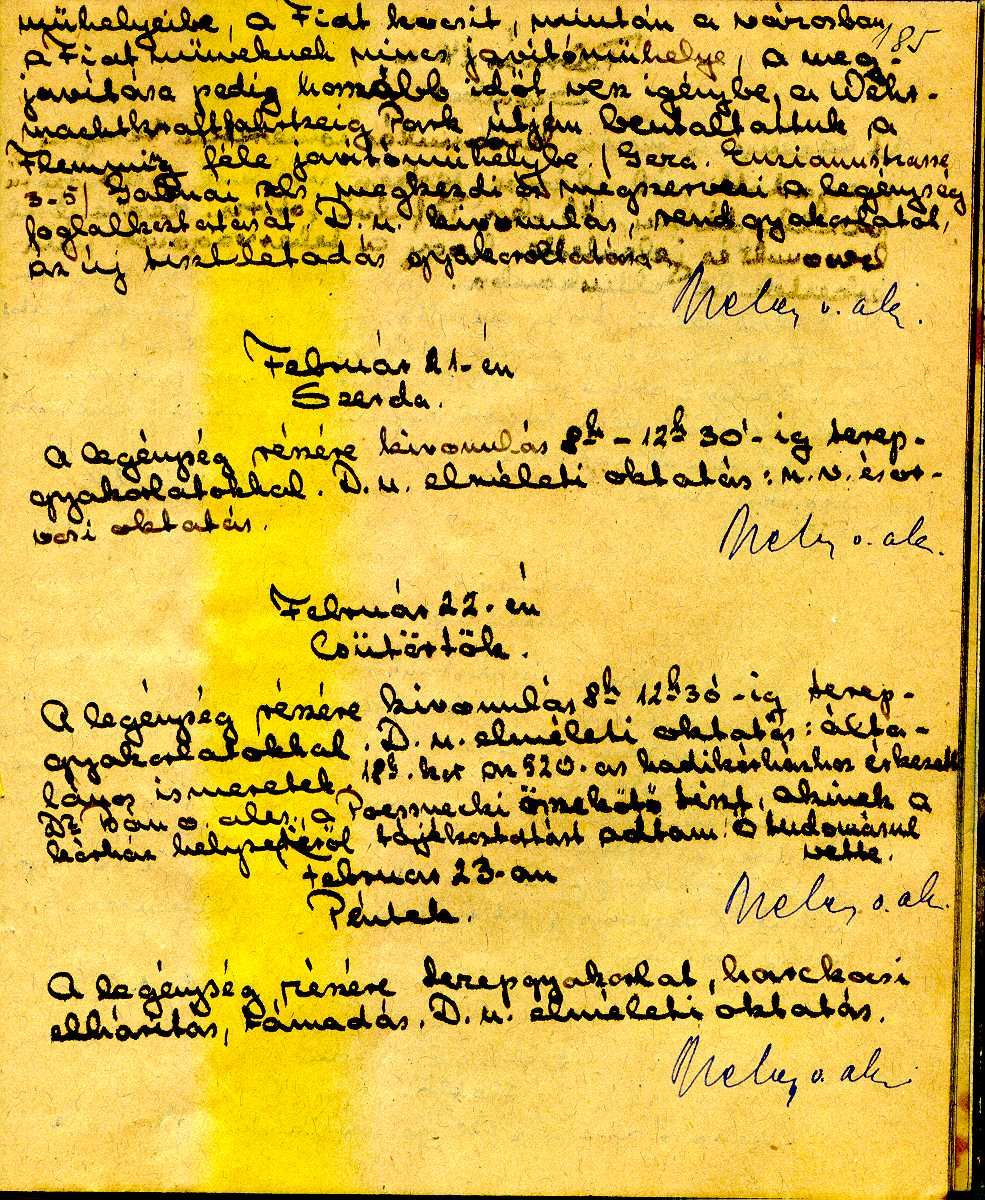 műhelyeibe, a Fiat kocsit, miután a városban
185
a Fiat műveknek nincs javítóműhelye, a meg-
javitása pedig hosszabb időt vesz igénybe, a Wehr-
machtkraftfahrtzeig Park útján beutaltattuk a
Flemmig féle javitóműhelybe. / Gera. Enzianustrasse
3-5/ megkezdi és megszervezi a legénység
foglalkoztatását. D.u. kivonulás, rendgyakorlatot,
az új tisztletadás gyakoroltatása
Február 21-én
Szerda.
A legénység részére kivonulás 8h - 12h 30'-ig terep-
gyakorlatokkal. D.u. elméleti oktatás: n.v. és or-
vosi oktatás.
Február 22-én
Csütörtök.
A legénység részére kivonulás 8h 12h30-ig terep-
gyakorlatokkal. D.u. elméleti oktatás: álta-
lános ismeretek. 18h.kor az 520.as hadikórházhoz érkezett
Dr o. a Poessnecki összekötő tiszt, akinek a
kórház helyzetéről tájékoztatást adtam. Ő tudomásul
vette.
Február 23-án
Péntek.
A legénység részére terepgyakorlat, harckocsi
elhárítás, támadás. D.u. elméleti oktatás.